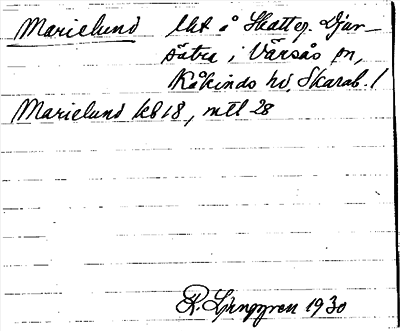 Marielund lht å Skatteg. Djur-
sätra i Värsås sn,
Kåkinds hd, Skarab. l
Marielund kb 18, mtl 28
R. Ljunggren 1930